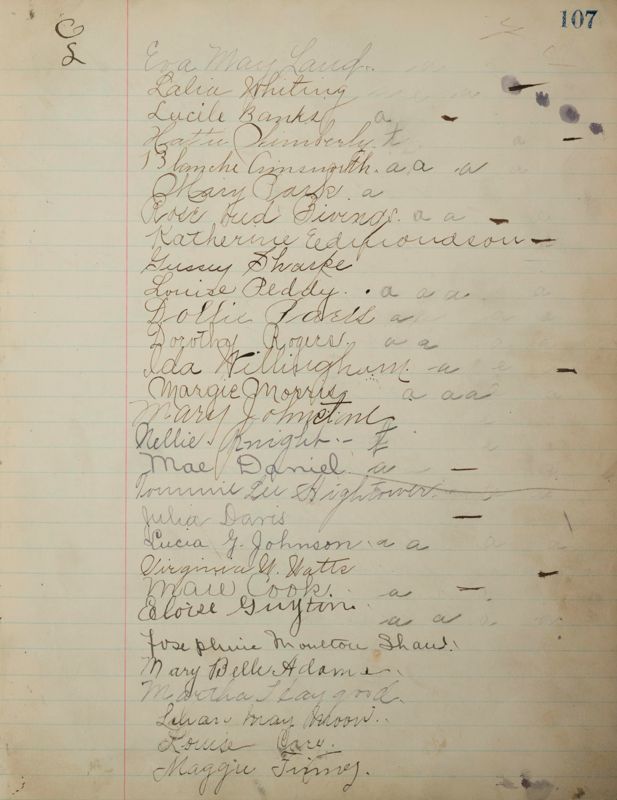 107
Eva May Laud.
Lalia Whiting
Lucile Banks a
Hattie Kimberly
Blanche Ainsworth. a a a
Mary Park a
Rose Bud Bivens. a a
Katherine Eedmondson
Gussey Sharpe
Louise Peddy. a a a
Dollie a
Dorothy Rogers. a a
Ida Willingham. a
Margie Morris a a a
Mary Johnstone
Nellie Knight.
Mae Daniel. a
Tommie Lee Hightower.
Julia Davis
Lucia G. Johnson. a a
Virginia H. Watts
Marie Cook. a
Eloise Guyton. a a
Josephine Moulton Shaw.
Mary Belle Adams.
Martha Haygood.
May Moon.
Louise Cary.
Maggie Finney.